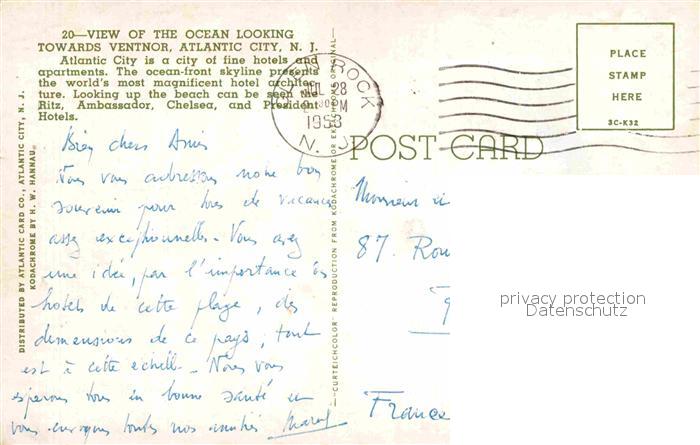 20—VIEW OF THE OCEAN LOOKING
TOWARDS VENTNOR, ATLANTIC CITY, N. J.
Atlantic City is a city of fine hotels and
apartments. The ocean-front skyline presents
the world's most magnificent hotel architec-
ture. Looking up the beach can be seen the
Ritz, Ambassador, Chelsea, and President
Hotels.
DISTRIBUTED BY ATLANTIC CARD CO., ATLANTIC CITY, N. J.
KODACHROME BY H. W. HANNAU
Bien chers Amis
Nous vous adressons notre bon
souvenir pour de vacances
assez exceptionnelles. Vous avez
une idée, par l'importance des
hotels de cette plage, des
dimensions de ce pays, tout
est à cette échelle. Nous vous
esperons tous en bonne santé et
vous envoyons toutes nos amitiés
—CURTEICHCOLOR REPRODUCTION FROM KODACHROME OR EKTACHROME ORIGINAL—
ROCK
28
PM
1953
N. J.
PLACE
STAMP
HERE
3C-K32
POST CARD
Monsieur
87. Rou
9
France
privacy protection
Datenschutz